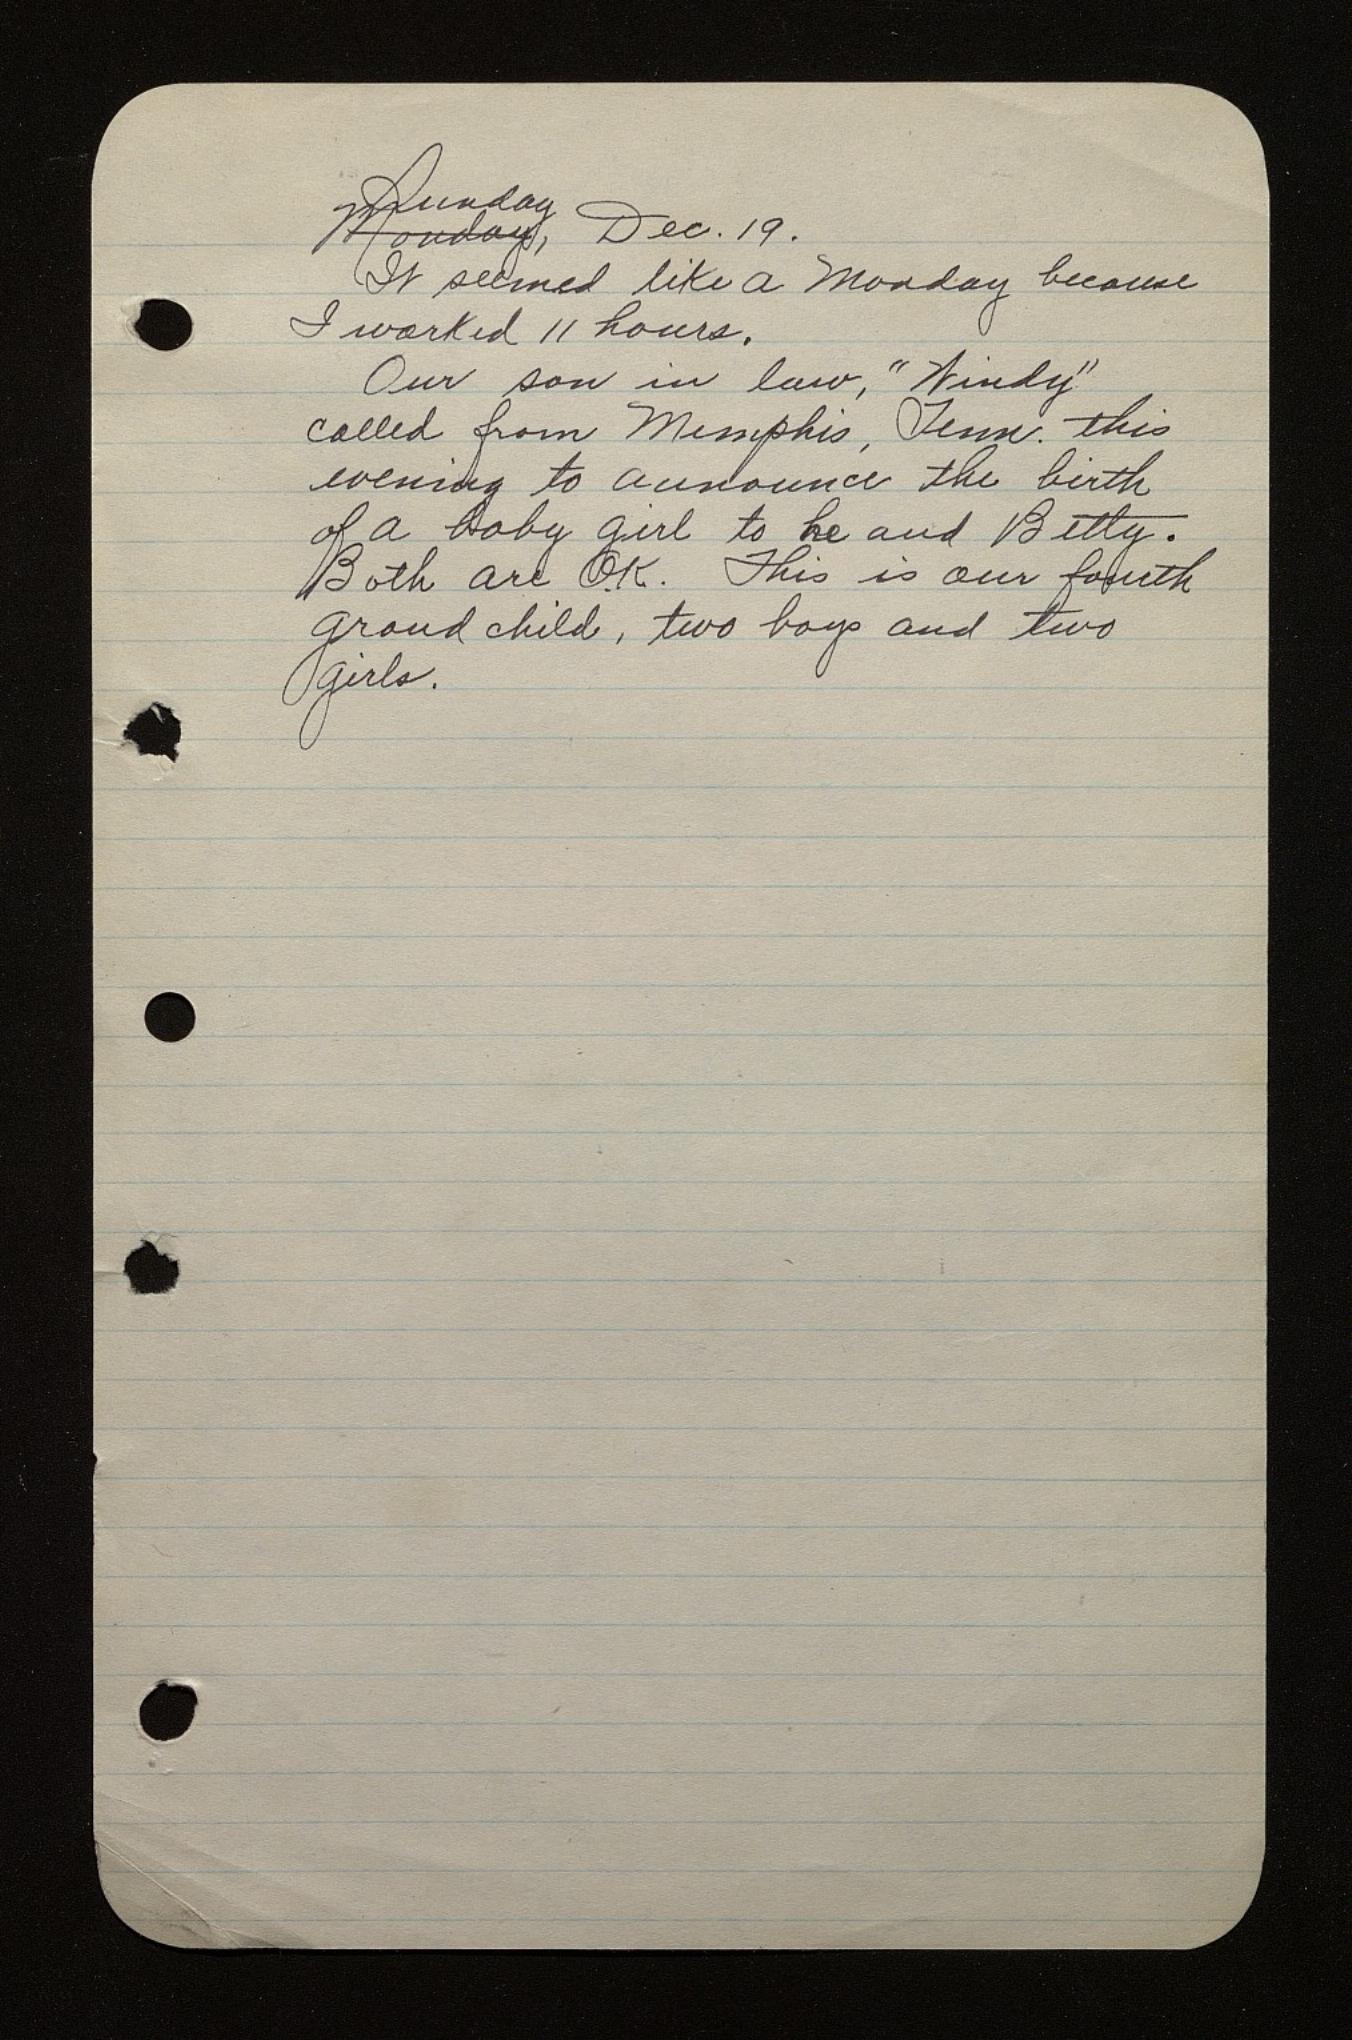 Sunday
Monday, Dec. 19.
It seemed like a Monday because
I worked 11 hours.
Our son in law, "Windy"
called from Memphis, Tenn. this
evening to announce the birth
of a baby girl to he and Betty.
Both are O.K. This is our fourth
grand child, two boys and two
girls.